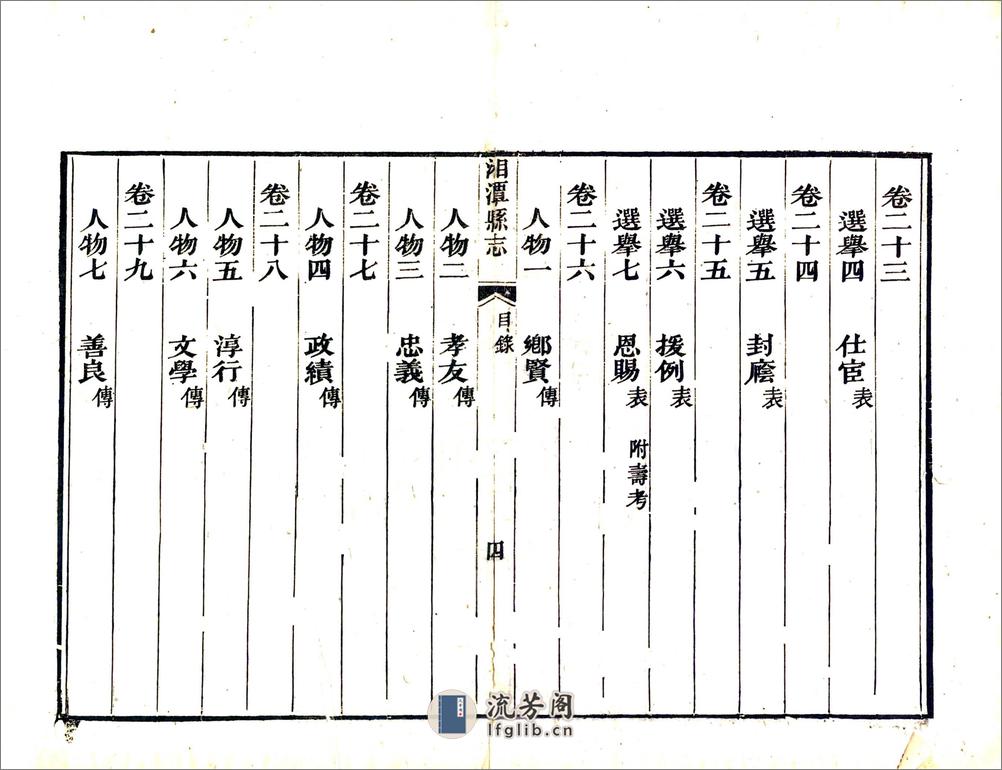 卷二十三
選舉四 仕宦表
卷二十四
選舉五 封廕表
卷二十五
選舉六 援例表
選舉七 恩賜表 附壽考
卷二十六
人物一 鄉賢傳
湘潭縣志 目錄 四
人物二 孝友傳
人物三 忠義傳
卷二十七
人物四 政績傳
卷二十八
人物五 淳行傳
人物六 文學傳
卷二十九
人物七 善良傳
流芳阁
lfglib.cn